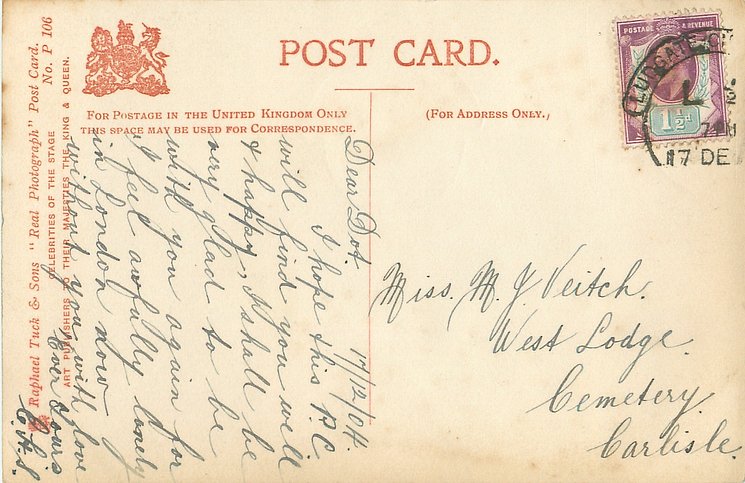 POST CARD.
FOR POSTAGE IN THE UNITED KINGDOM ONLY
THIS SPACE MAY BE USED FOR CORRESPONDENCE.
(FOR ADDRESS ONLY.)
Raphael Tuck & Sons "Real Photograph" Post Card.
No. P 106
CELEBRITIES OF THE STAGE
ART PUBLISHERS TO THEIR MAJESTIES THE KING & QUEEN.
POSTAGE & REVENUE
1½d
LUDGATE
L
17 DE
17/12/04.
Dear Dot.
I hope this P.C
will find you well
& happy, I shall be
very glad to be
with you again for
I feel awfully lonely
in London now
without you, with love
Ever Yours
Miss. M. J Veitch.
West Lodge.
Cemetery
Carlisle.